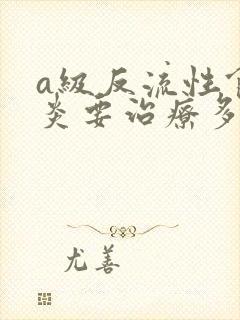 a級反流性
炎要治療多
尤善